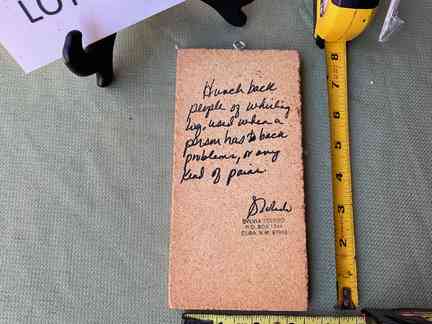 LOT
Hunch back
people of whirling
log, used when a
person has to back
problems, or any
kind of pains
SYLVIA TOLEDO
P.O. BOX
CUBA, N.M. 87013
8
7
6
5
4
3
2